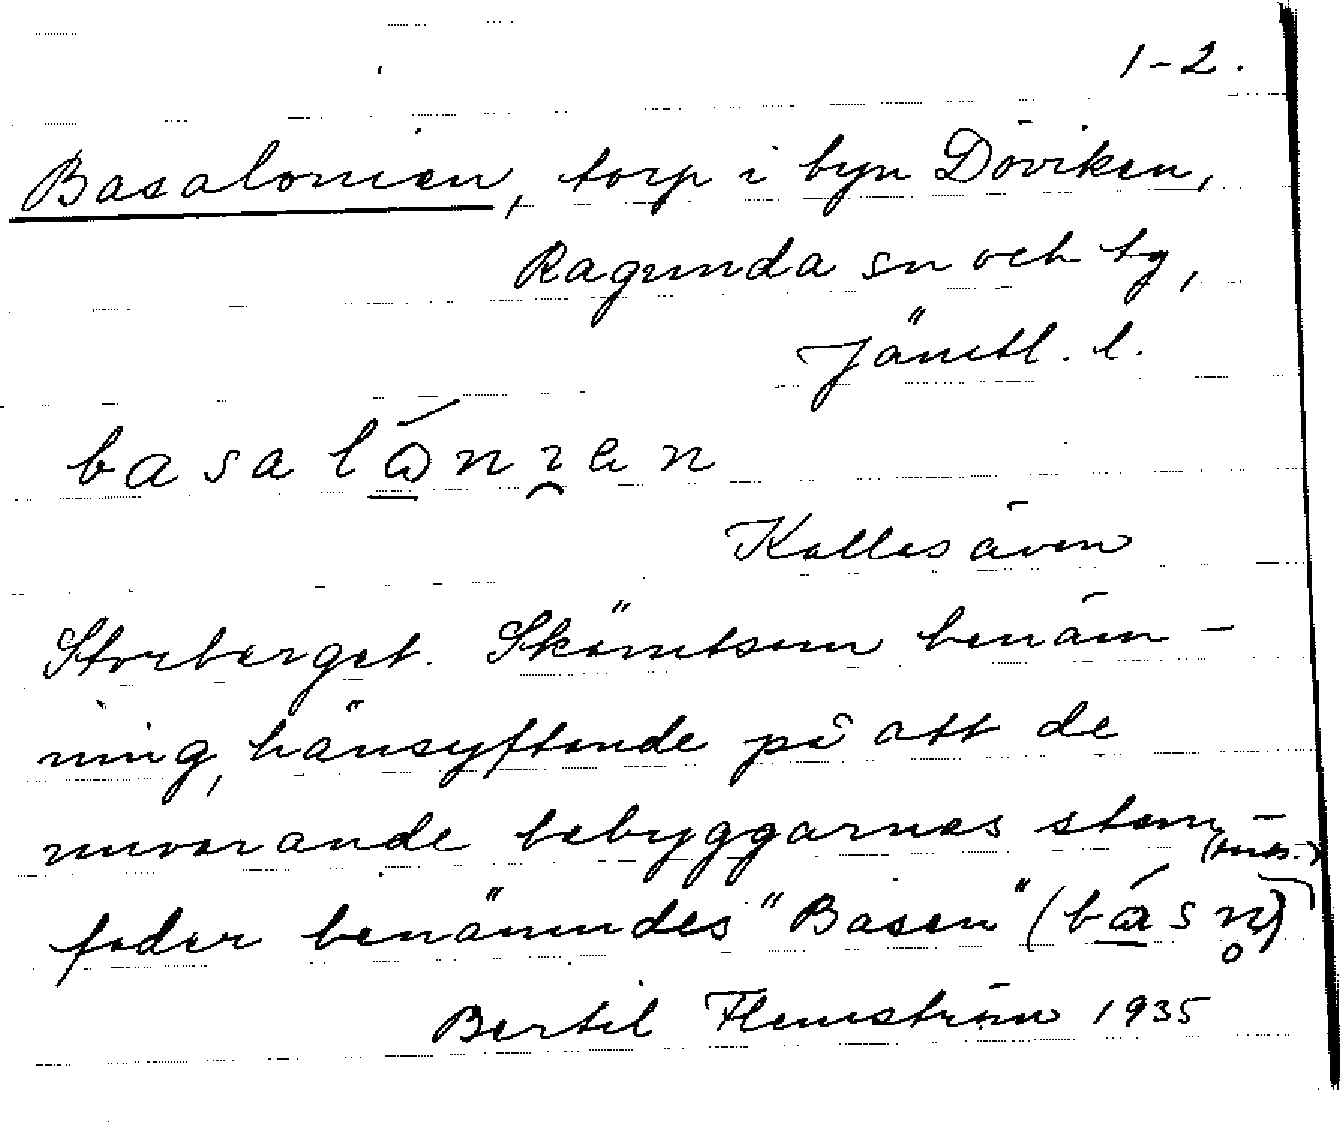 1-2.
Basalonien, torp i byn Döviken,
Ragunda sn och tg,
Jämtl. l.
basalånien
Kallas även
Storberget. Skämtsam benäm-
ning, hänsyftande på att de
nuvarande bebyggarnas stam-
fader benämndes "Basen" (básn)
Bertil Flemström 1935